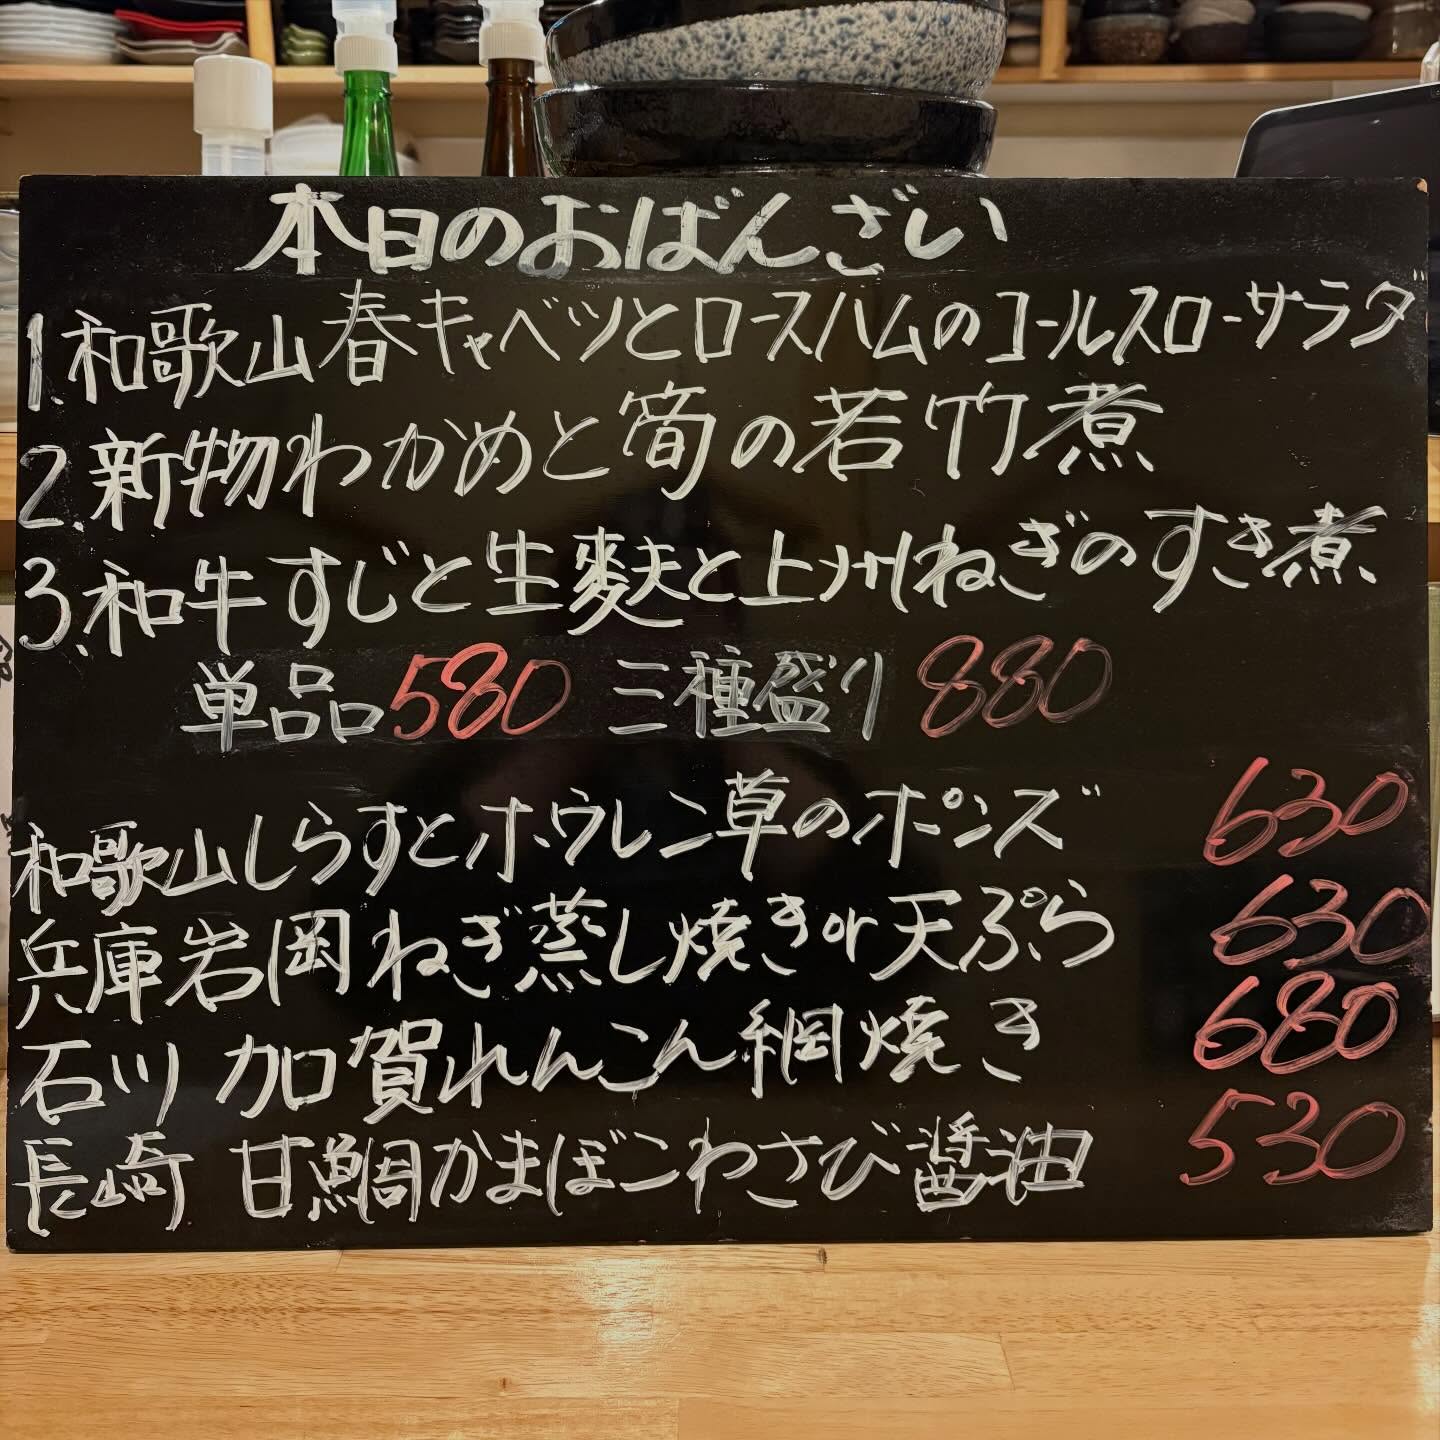 本日のおばんざい
1.和歌山春キャベツとロースハムのコールスローサラダ
2.新物わかめと筍の若竹煮
3.和牛すじと生麩と上州ねぎのすき煮
単品580 三種盛り 880
和歌山しらすとホウレン草のポンズ 630
兵庫岩岡ねぎ蒸し焼きor天ぷら 630
石川 加賀れんこん網焼き 680
長崎 甘鯛かまぼこわさび醤油 530